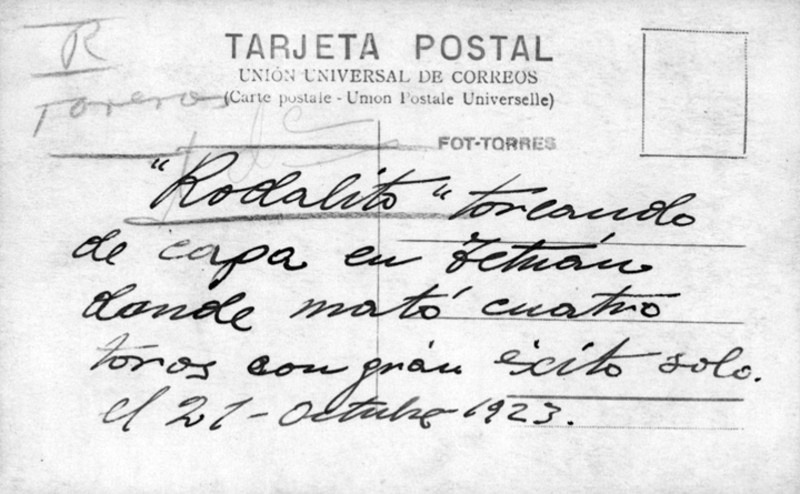 R
Toreros
TARJETA POSTAL
UNIÓN UNIVERSAL DE CORREOS
(Carte postale - Union Postale Universelle)
FOT-TORRES
"Rodalito" toreando
de capa en Tetuán
donde mató cuatro
toros con grán éxito solo.
el 21 - Octubre 1923.